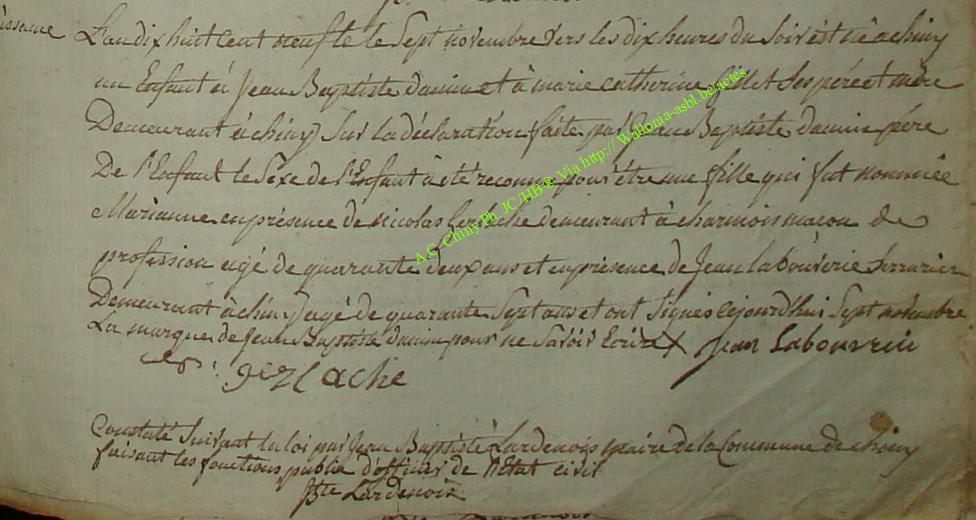 L'an dix huit cent neuf le le Sept novembre vers les dix heures du Soir est né a chiny
un Enfant à Jean Baptiste damin et à marie catherine fillet Ses père et mère
Demeurant à chiny Sur la déclaration faite par Jean Baptiste damin père
De l'Enfant le Sexe de l'Enfant à été reconnu pour être une fille qui fut nommée
Marianne en présence de nicolas demeurant à charmois macon de
profession agé de quarante deux ans et en présence de Jean labouverie Serrurier
Demeurant à chiny agé de quarante Sept ans et ont Signés cejourd'hui Sept novembre
La marque de Jean Baptiste damin pour ne Savoir Ecrire X Jean Labouvrie
Constaté Suivant la loi par Jean Baptiste Lardenois maire de la Commune de chiny
faisant les fonctions public d'officier de l'Etat civil
Bte Lardenois
A.G. Chiny Ph. JC/HB @ Via http:// Wallonia-asbl.be:actes